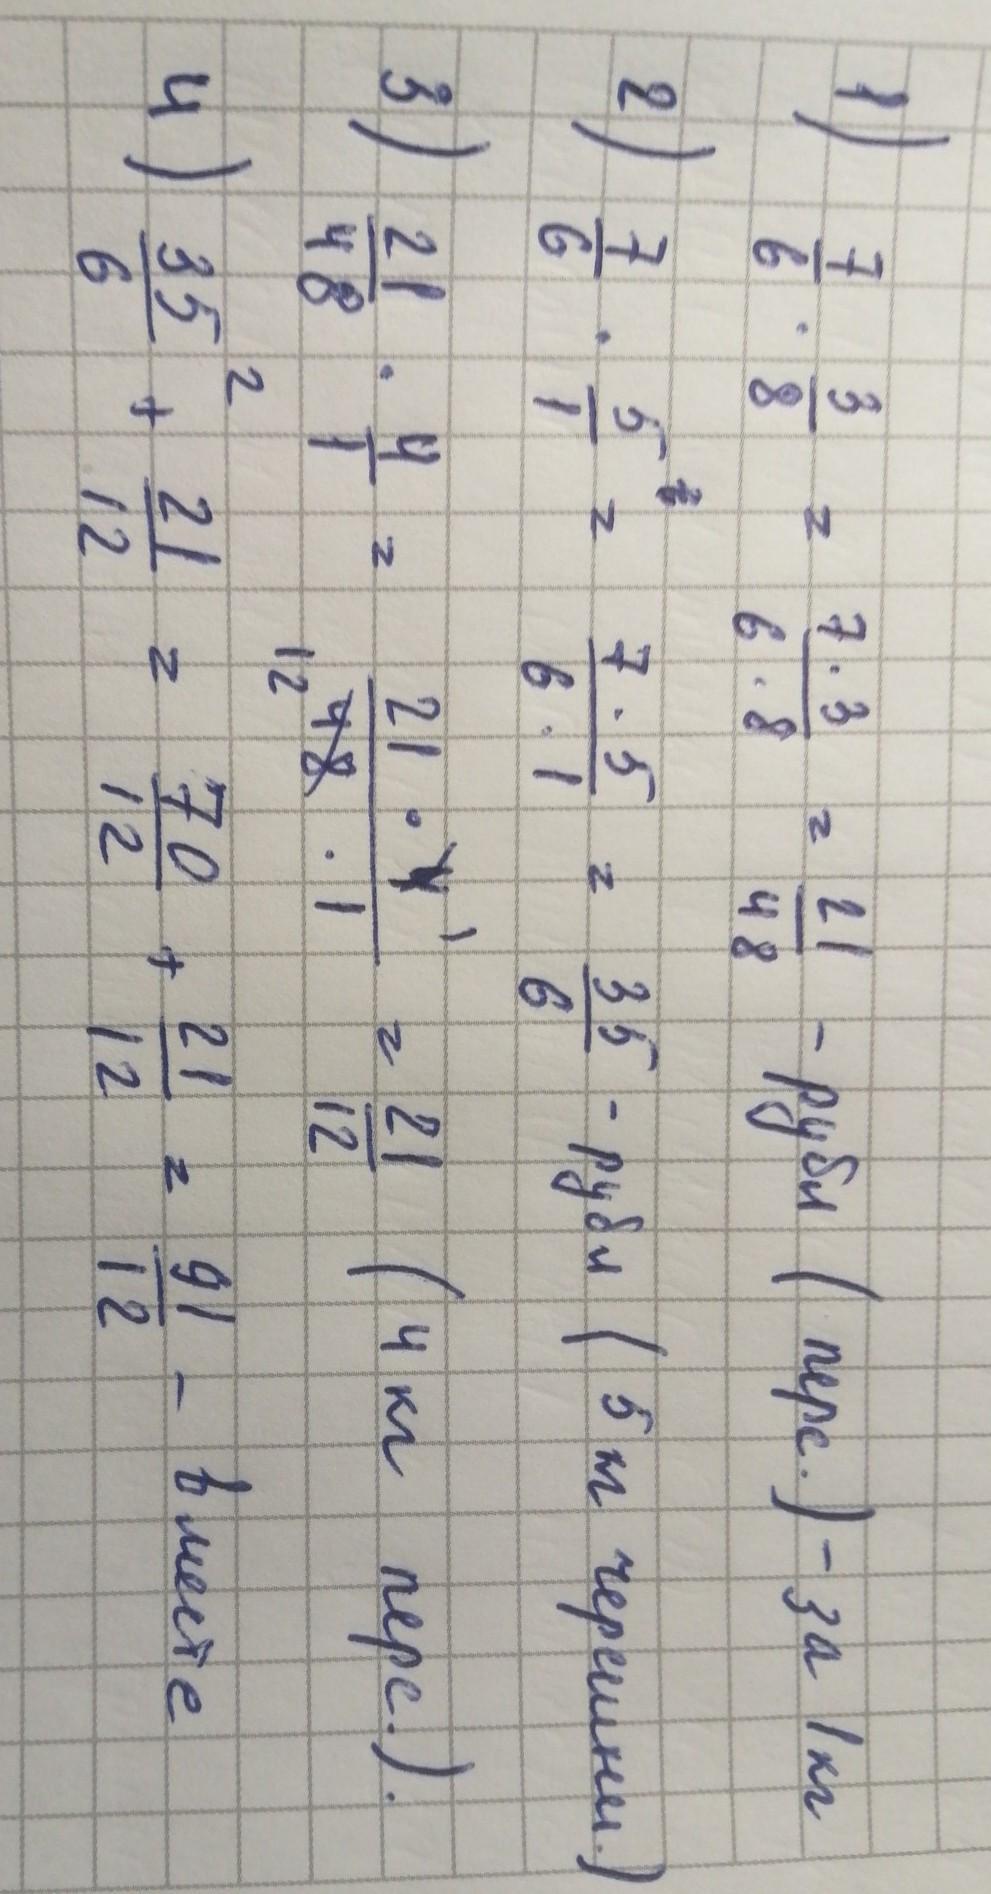 1) 7/6 · 3/8 = 7·3/6·8 = 21/48 - рубл (перс.) - за 1кг
2) 7/6 · 5/1 = 7·5/6·1 = 35/6 - рубл (5 кг черешни.)
3) 21/48 · 4/1 = 21·4 1/12 48·1 = 21/12 (4 кг перс.).
4) 35/6 2 + 21/12 = 70/12 + 21/12 = 91/12 - вместе